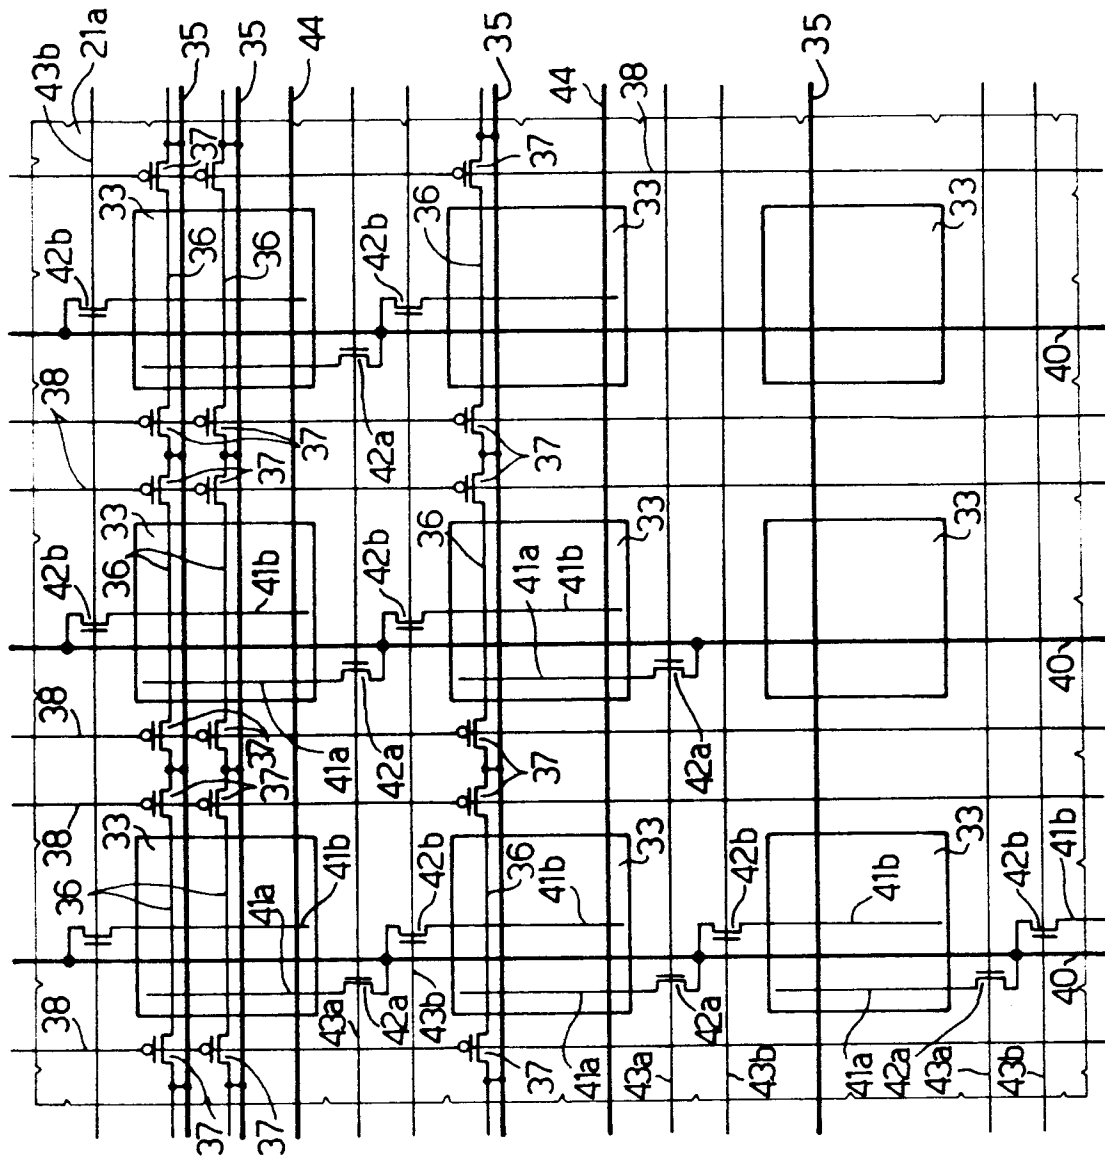 43b
21a
35
35
44
35
44
38
35
37
37
33
36
36
42b
42b
36
37
33
33
38
42a
37
37
40
38
33
36
42b
41b
42b
36
41a
41b
33
33
38
37
41a
42a
37
42a
40
38
37
33
36
41a
41b
42b
36
41b
33
42b
41b
33
42b
41b
38
43a
42a
43b
41a
42a
43a
43b
41a
42a
43a
43b
40
37
37
37